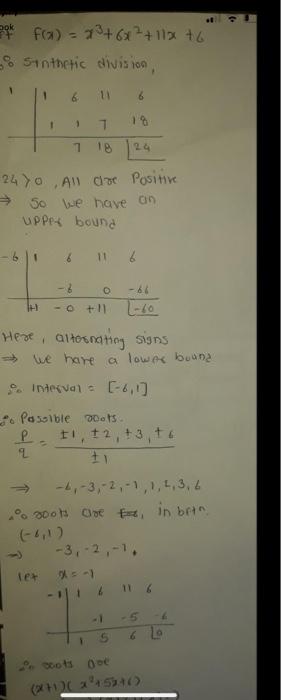 f(x) = x³+6x²+11x +6
∴ Sinthetic division,
1 | 1 6 11 6
1 7 18
1 7 18 | 24
24 > 0, All are Positive
⇒ So we have an
upper bound
-6 | 1 6 11 6
-6 0 -66
+1 -0 +11 | -60
Here, alternating signs
⇒ we have a lower bound
∴ Interval = [-6,1]
∴ Possible roots.
p/q = ±1, ±2, ±3, ±6 / ±1
⇒ -6,-3,-2,-1,1,2,3,6
∴ roots are in betn.
(-6,1)
⇒ -3,-2,-1.
let x = -1
-1 | 1 6 11 6
-1 -5 -6
1 5 6 | 0
∴ roots are
(x+1)(x²+5x+6)